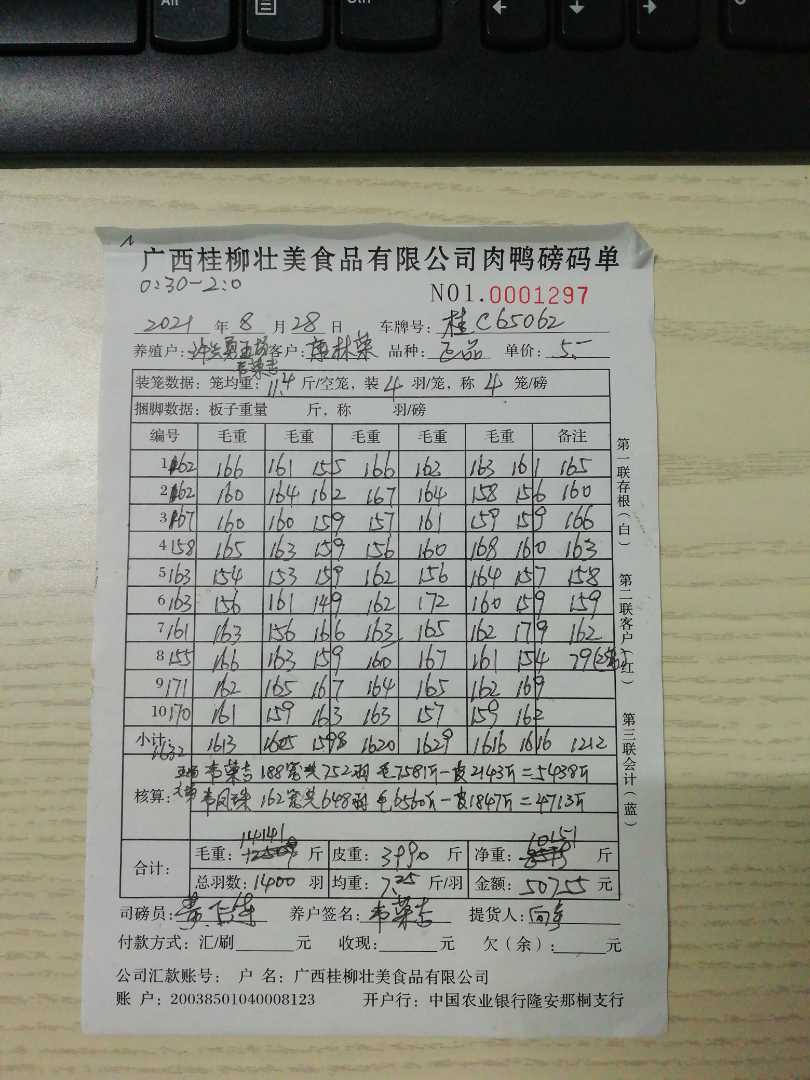 Alt
Ctrl
广西桂柳壮美食品有限公司肉鸭磅码单
0:30-2:0
NO1.0001297
2021 年 8 月 28 日 车牌号: 桂C65062
养殖户: 客户: 品种: 正品 单价: 5.-
韦荣吉
装笼数据: 笼均重: 11.4 斤/空笼, 装 4 羽/笼, 称 4 笼/磅
捆脚数据: 板子重量 斤, 称 羽/磅
编号 毛重 毛重 毛重 毛重 毛重 备注
1 162 166 161 155 166 163 163 161 165
2 162 160 164 162 167 164 158 156 160
3 167 160 160 159 157 161 159 159 166
4 158 165 163 159 156 160 168 160 163
5 163 154 153 159 162 156 164 157 158
6 163 156 161 149 162 172 160 159 159
7 161 163 156 166 163 165 162 179 162
8 155 166 163 159 160 167 161 154 79
9 171 162 165 167 164 165 162 169
10 170 161 159 163 163 157 159 162
小计: 1632 1613 1605 1598 1620 1629 1616 1616 1212
核算: 韦荣吉 188笼共752羽 毛7581斤-皮2143斤=5438斤
韦凤珠 162笼共648羽 毛6560斤-皮1847斤=4713斤
合计: 毛重: 14141 斤 皮重: 3990 斤 净重: 10151 斤
总羽数: 1400 羽 均重: 7.25 斤/羽 金额: 50755 元
司磅员: 养户签名: 韦荣吉 提货人:
付款方式: 汇/刷 元 收现: 元 欠(余): 元
公司汇款账号: 户 名: 广西桂柳壮美食品有限公司
账 户: 20038501040008123 开户行: 中国农业银行隆安那桐支行
第一联存根(白)
第二联客户(红)
第三联会计(蓝)